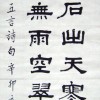 石出天寒
無雨空翠
五言詩句辛卯